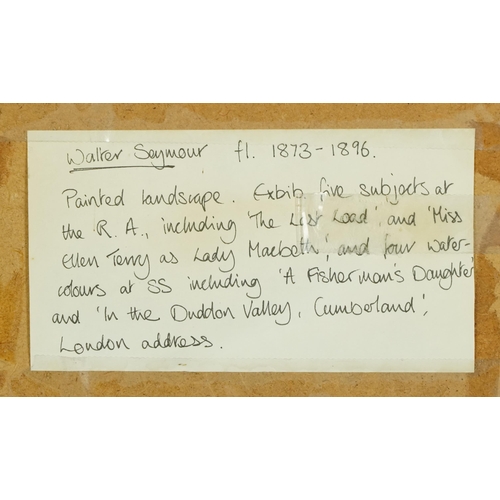 Walter Seymour fl. 1873-1896.
Painted landscape. Exhib. five subjects at
the R.A., including 'The Last Load', and 'Miss
Ellen Terry as Lady Macbeth', and four water-
colours at SS including 'A Fisherman's Daughter'
and 'In the Duddon Valley, Cumberland',
London address.